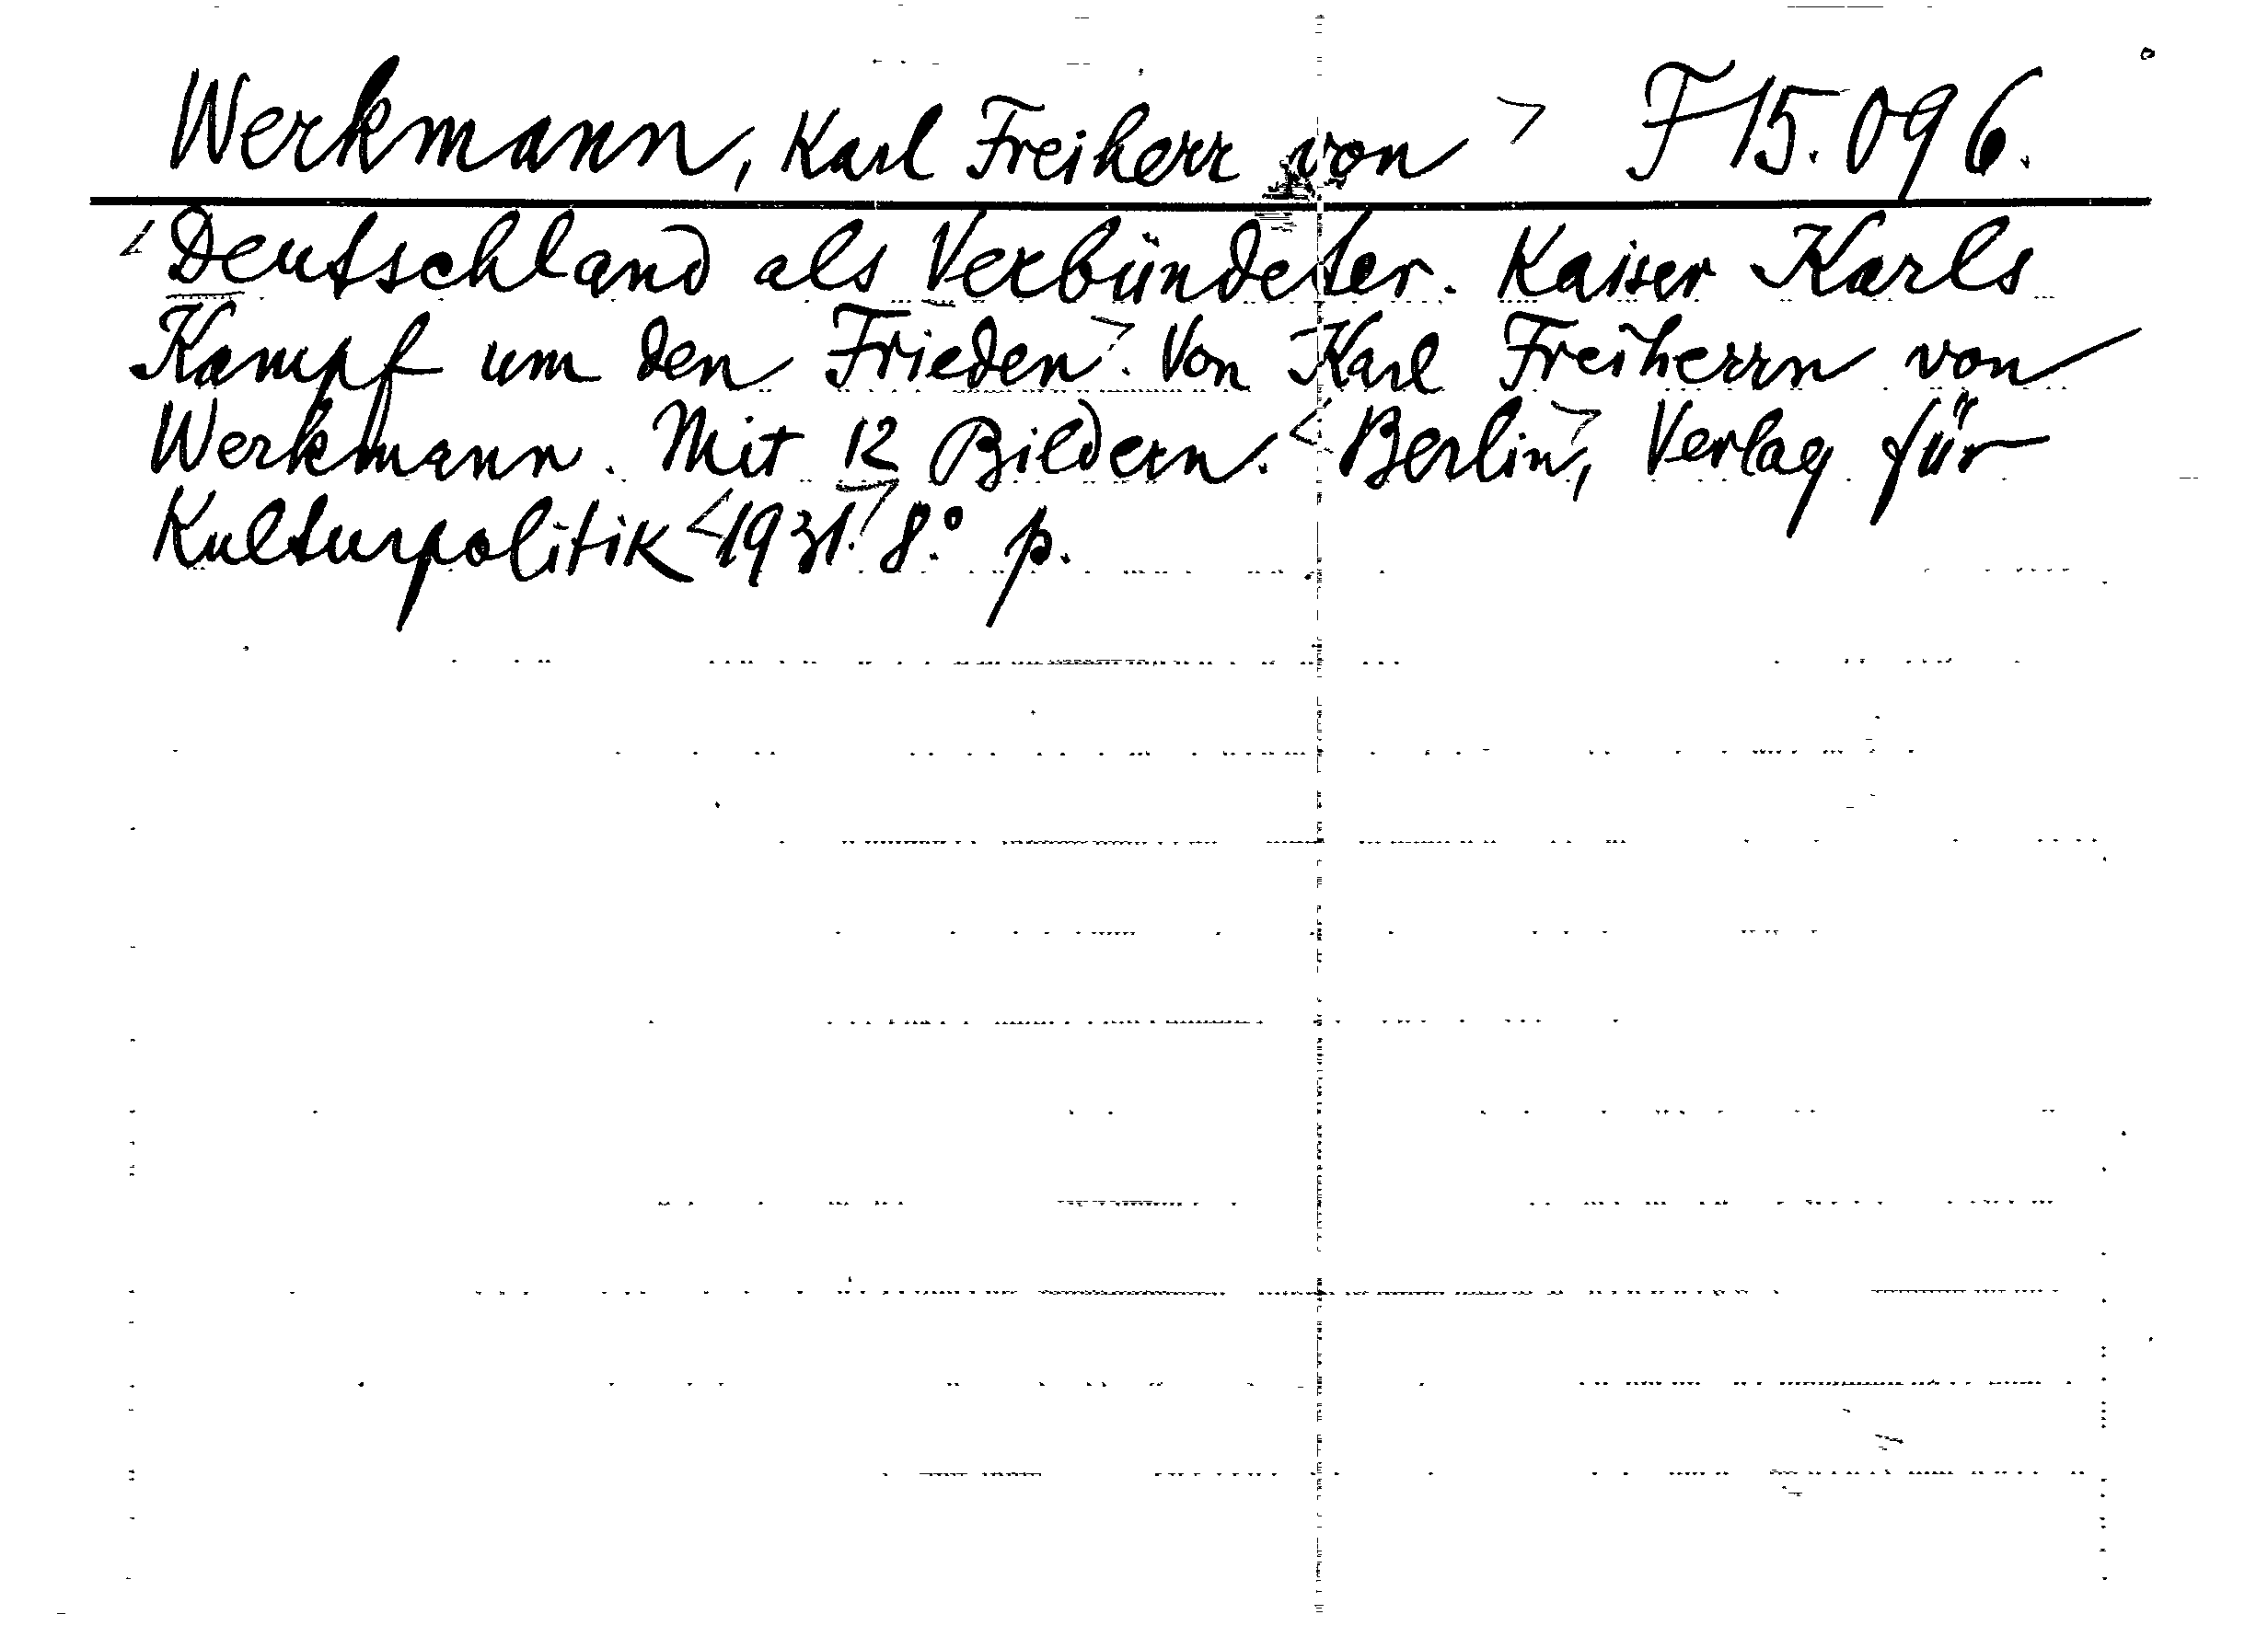 Werkmann, Karl Freiherr von > F 15.096.
<Deutschland als Verbündeter. Kaiser Karls
Kampf um den Frieden>. Von Karl Freiherrn von
Werkmann. Mit 12 Bildern. <Berlin>, Verlag für
Kulturpolitik <1931.> 8.° p.